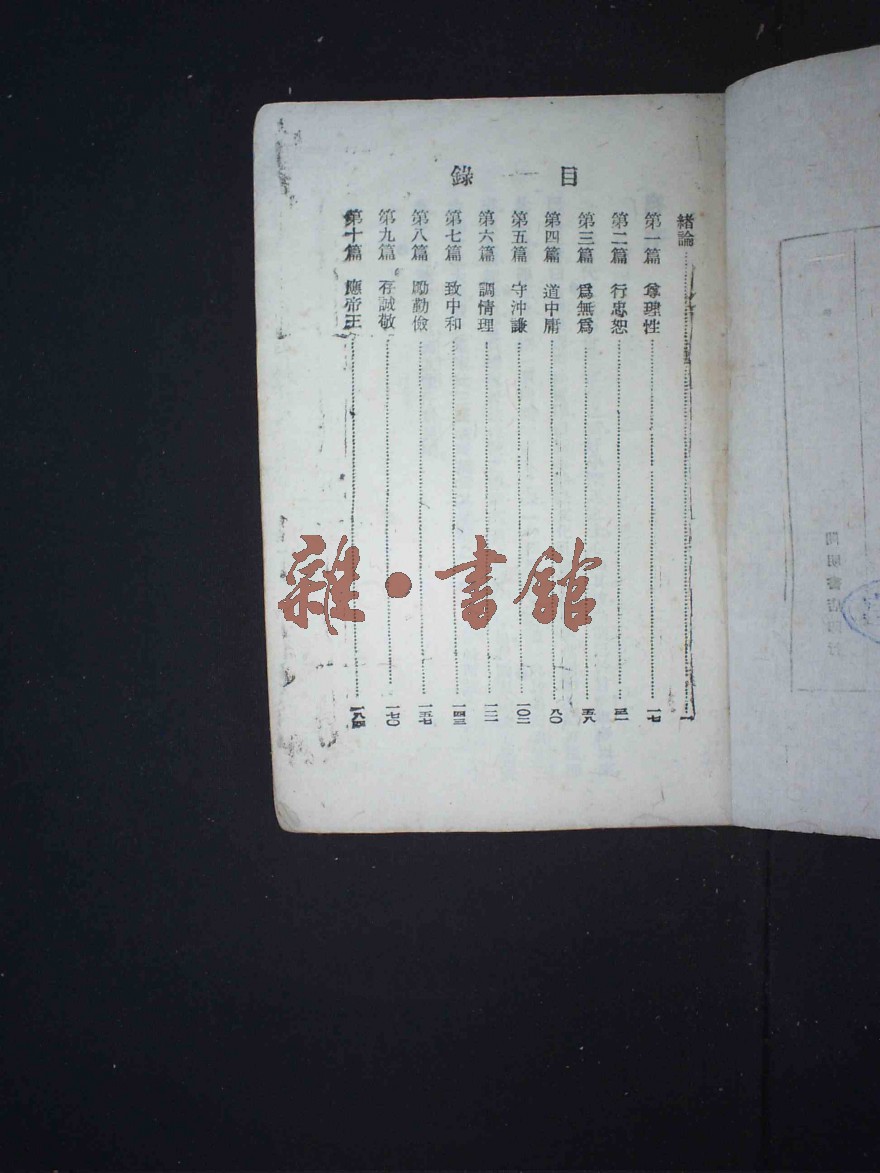 目錄
緒論……一
第一篇 尊理性……一七
第二篇 行忠恕……三一
第三篇 爲無爲……五八
第四篇 道中庸……八〇
第五篇 守沖謙……一〇二
第六篇 調情理……一二二
第七篇 致中和……一四三
第八篇 勵勤儉……一五七
第九篇 存誠敬……一七〇
第十篇 應帝王……一八四
雜·書館